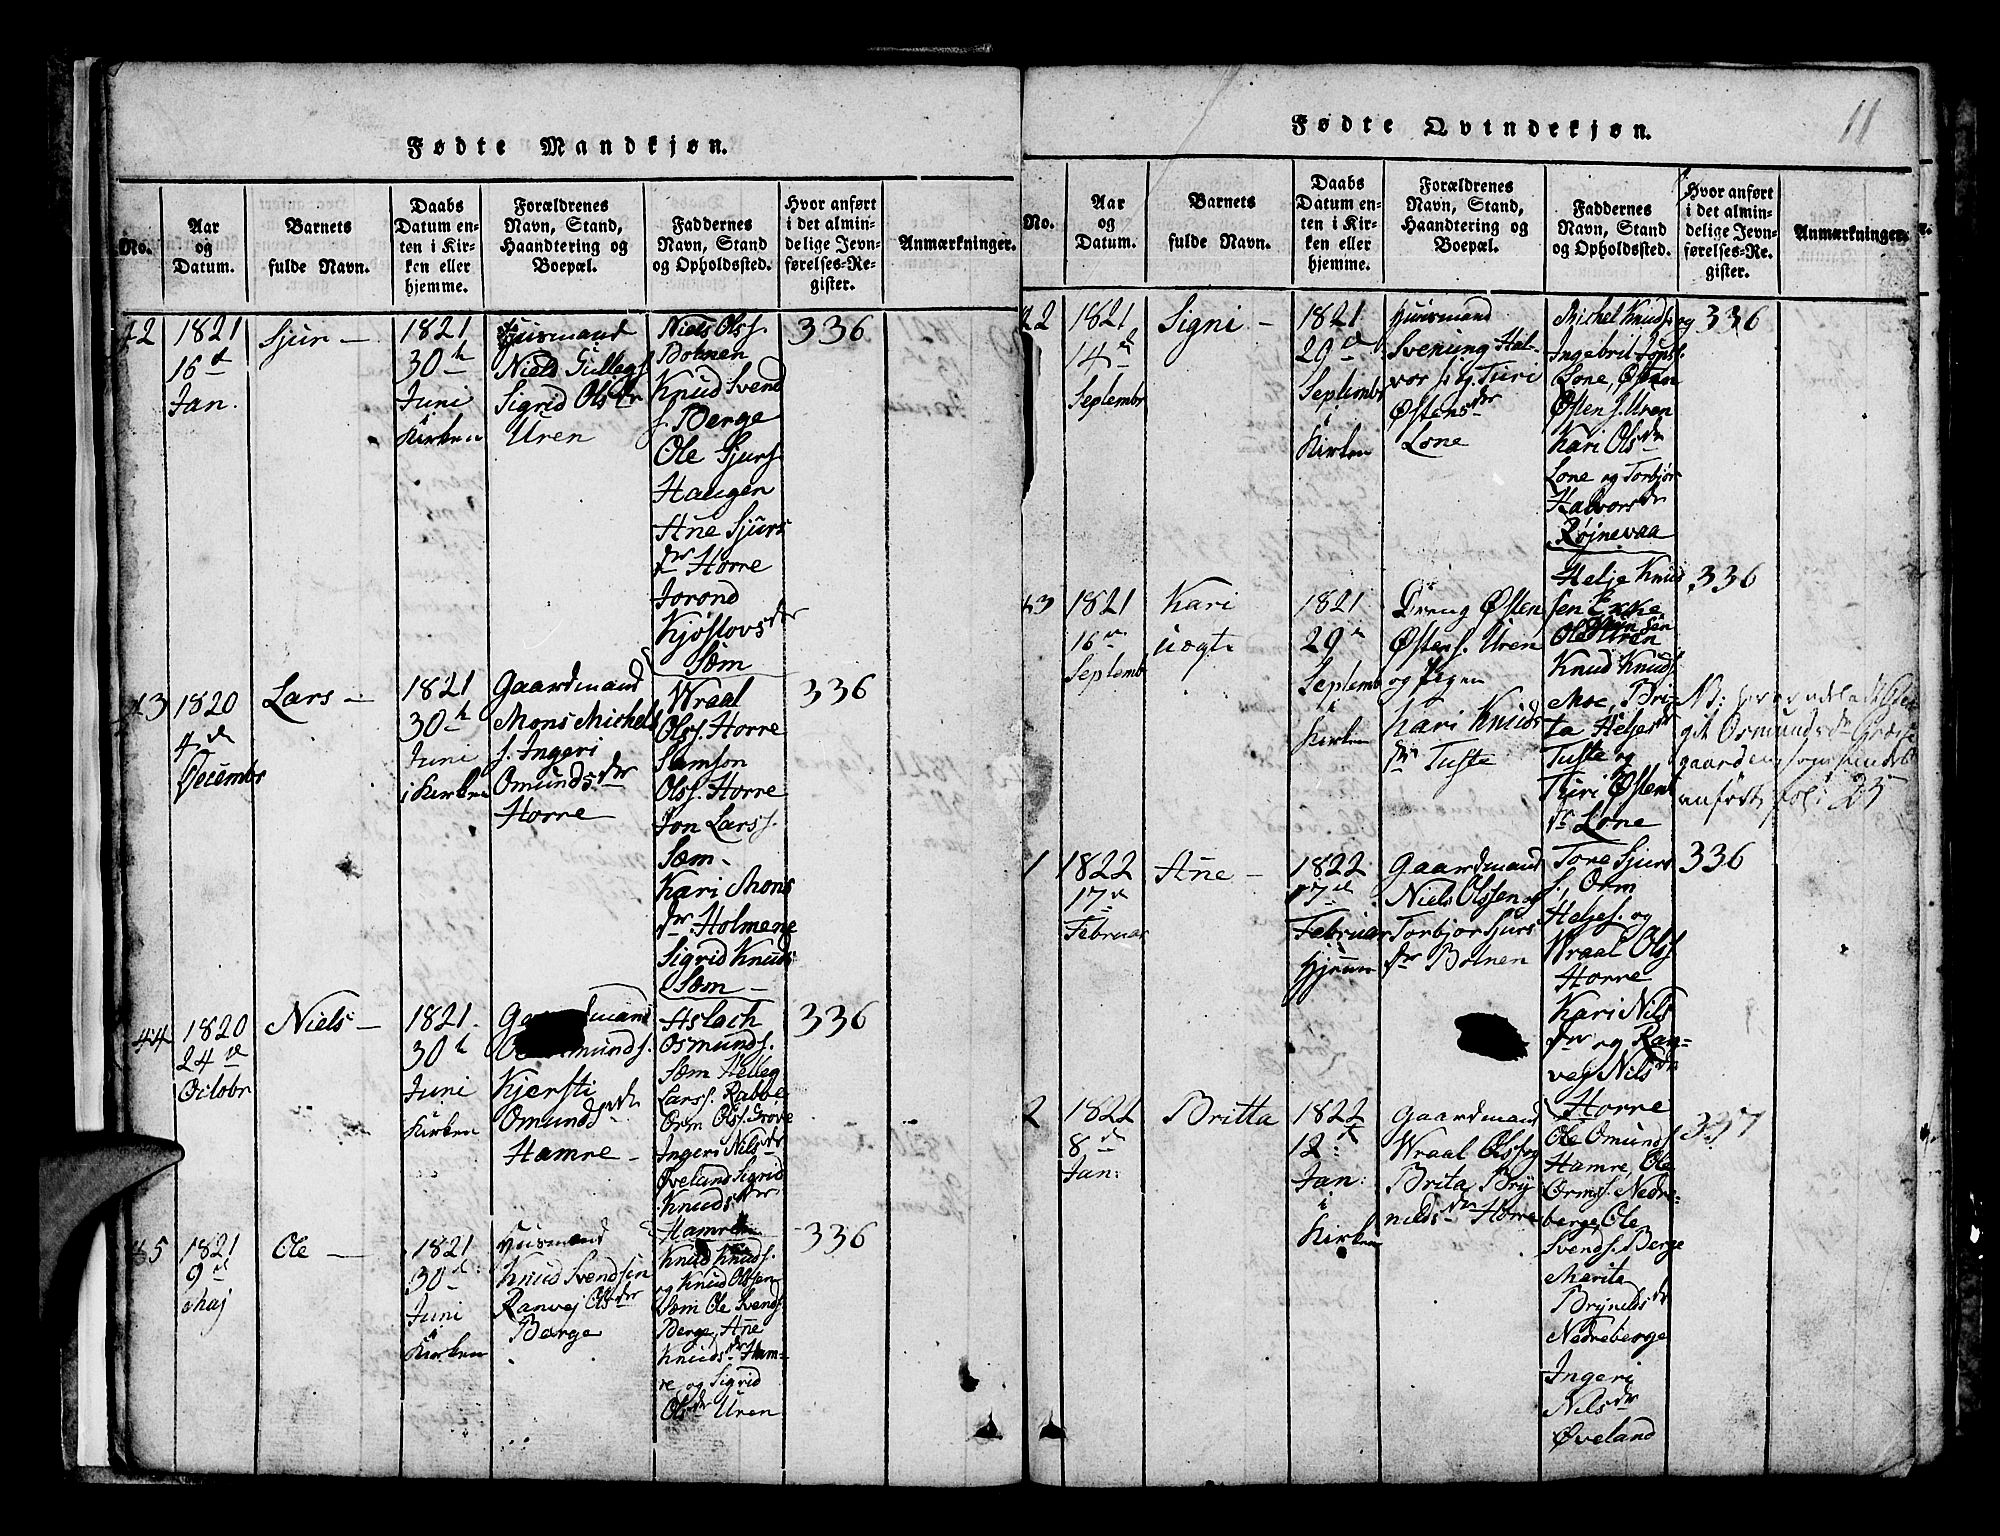 Fødte Mandkjøn.
No.
Aar
og
Datum.
Barnets
fulde Navn.
Daabs
Datum en-
ten i Kir-
ken eller
hjemme.
Forældrenes
Navn, Stand,
Haandtering og
Boepæl.
Faddernes
Navn, Stand
og Opholdssted.
Hvor anført
i det almin-
delige Jevn-
førelses-Re-
gister.
Anmærkninger.
42
1821
16d
Jan.
Sjur -
1821
30te
Juni
Kirken
Huusmand
Niels Gullegs.
Sigrid Olsdr
Uren
Niels Olss.
Botnen
Knud Svend
s. Berge
Ole Sjurs.
Haugen
Ane Sjurs
dr Horre
Jorond
Kjøstovsdr
Sæm
336
43
1820
4de
Decembr
Lars -
1821
30te
Juni
i Kirken
Gaardmand
Mons Michels
s. Ingeri
Omundsdr
Horre
Wraal
Olss. Horre
Samson
Olss. Horre
Jon Larss.
Sæm -
Kari Mons
dr. Holmene
Sigrid Knuds
Sæm -
336
44
1820
24de
Octobr
Niels -
1821
30te
Juni
Kirken
Kjersti
Omundsdr
Hamre -
Aslach
Osmunds.
Sæm Helleg
Larss. Rabbe
Orm Olss. Grøve
Ingeri Nilsdr
Øveland Sigrid
Knudsdr
Hamre
336
1821
9de
Maj
Ole -
1821
30te
Juni
Kirken
Huusmand
Knud Svendsen
Ranvej Olsdr
Berge
Knud Knuds.
og Knud Olssen
Sæm Ole Svends.
Berge, Ane
Knudsdr Ham-
re og Sigrid
Olsdr Uren
336
11
Fødte Qvindekjøn.
No.
Aar
og
Datum.
Barnets
fulde Navn.
Daabs
Datum en-
ten i Kir-
ken eller
hjemme.
Forældrenes
Navn, Stand,
Haandtering og
Boepæl.
Faddernes
Navn, Stand
og Opholdssted.
Hvor anført
i det almin-
delige Jevn-
førelses-Re-
gister.
Anmærkninger.
1821
14de
Septembr
Signi -
1821
29de
Septembr
i
Kirken
Huusmand
Svenung Hal-
vors. og Turi
Østensdr
Lone
Michel Knuds. og
Ingebrit
Lone, Østen
Østens. Uren
Kari Olsdr
Lone og Torbjør
Halvorsdr
Røjnevaa
336
1821
16de
Septembr
Kari
uægte
1821
29de
Septembr
i
Kirken
Dreng Østen
Østens. Uren
og Pigen
Kari Knuds
dr Tufte
Helje Knud
sen Ekke
Ole
Uren
Knud Knuds.
Moe, Bri-
ta Heljesdr
Tufte og
Turi Østens
dr Lone
336
NB: her er udeladt
Osmundsdr
gaarden
anført fol: 25
1
1822
17de
Februar
Ane -
1822
17de
Februar
Hjemme
Gaardmand
Niels Olssen og
Torbjør Sjurs
dr Botnen
Tore Sjurs
s., Orm
Heljes. og
Wraal Olss.
Horre
Kari Nils
dr og Ran-
vej Nilsdr
Horre
336
2
1822
8de
Jan:
Britta
1822
12:te
Jan:
i
Kirken
Gaardmand
Wraal Olss. og
Brita Bry
nildsdr Horre
Ole Omunds.
Hamre, Ole
Orms. Nedre-
berge, Ole
Svends. Berge
Marita
Brynildsdr
Nedreberge
Ingeri
Nilsdr
Øveland
337